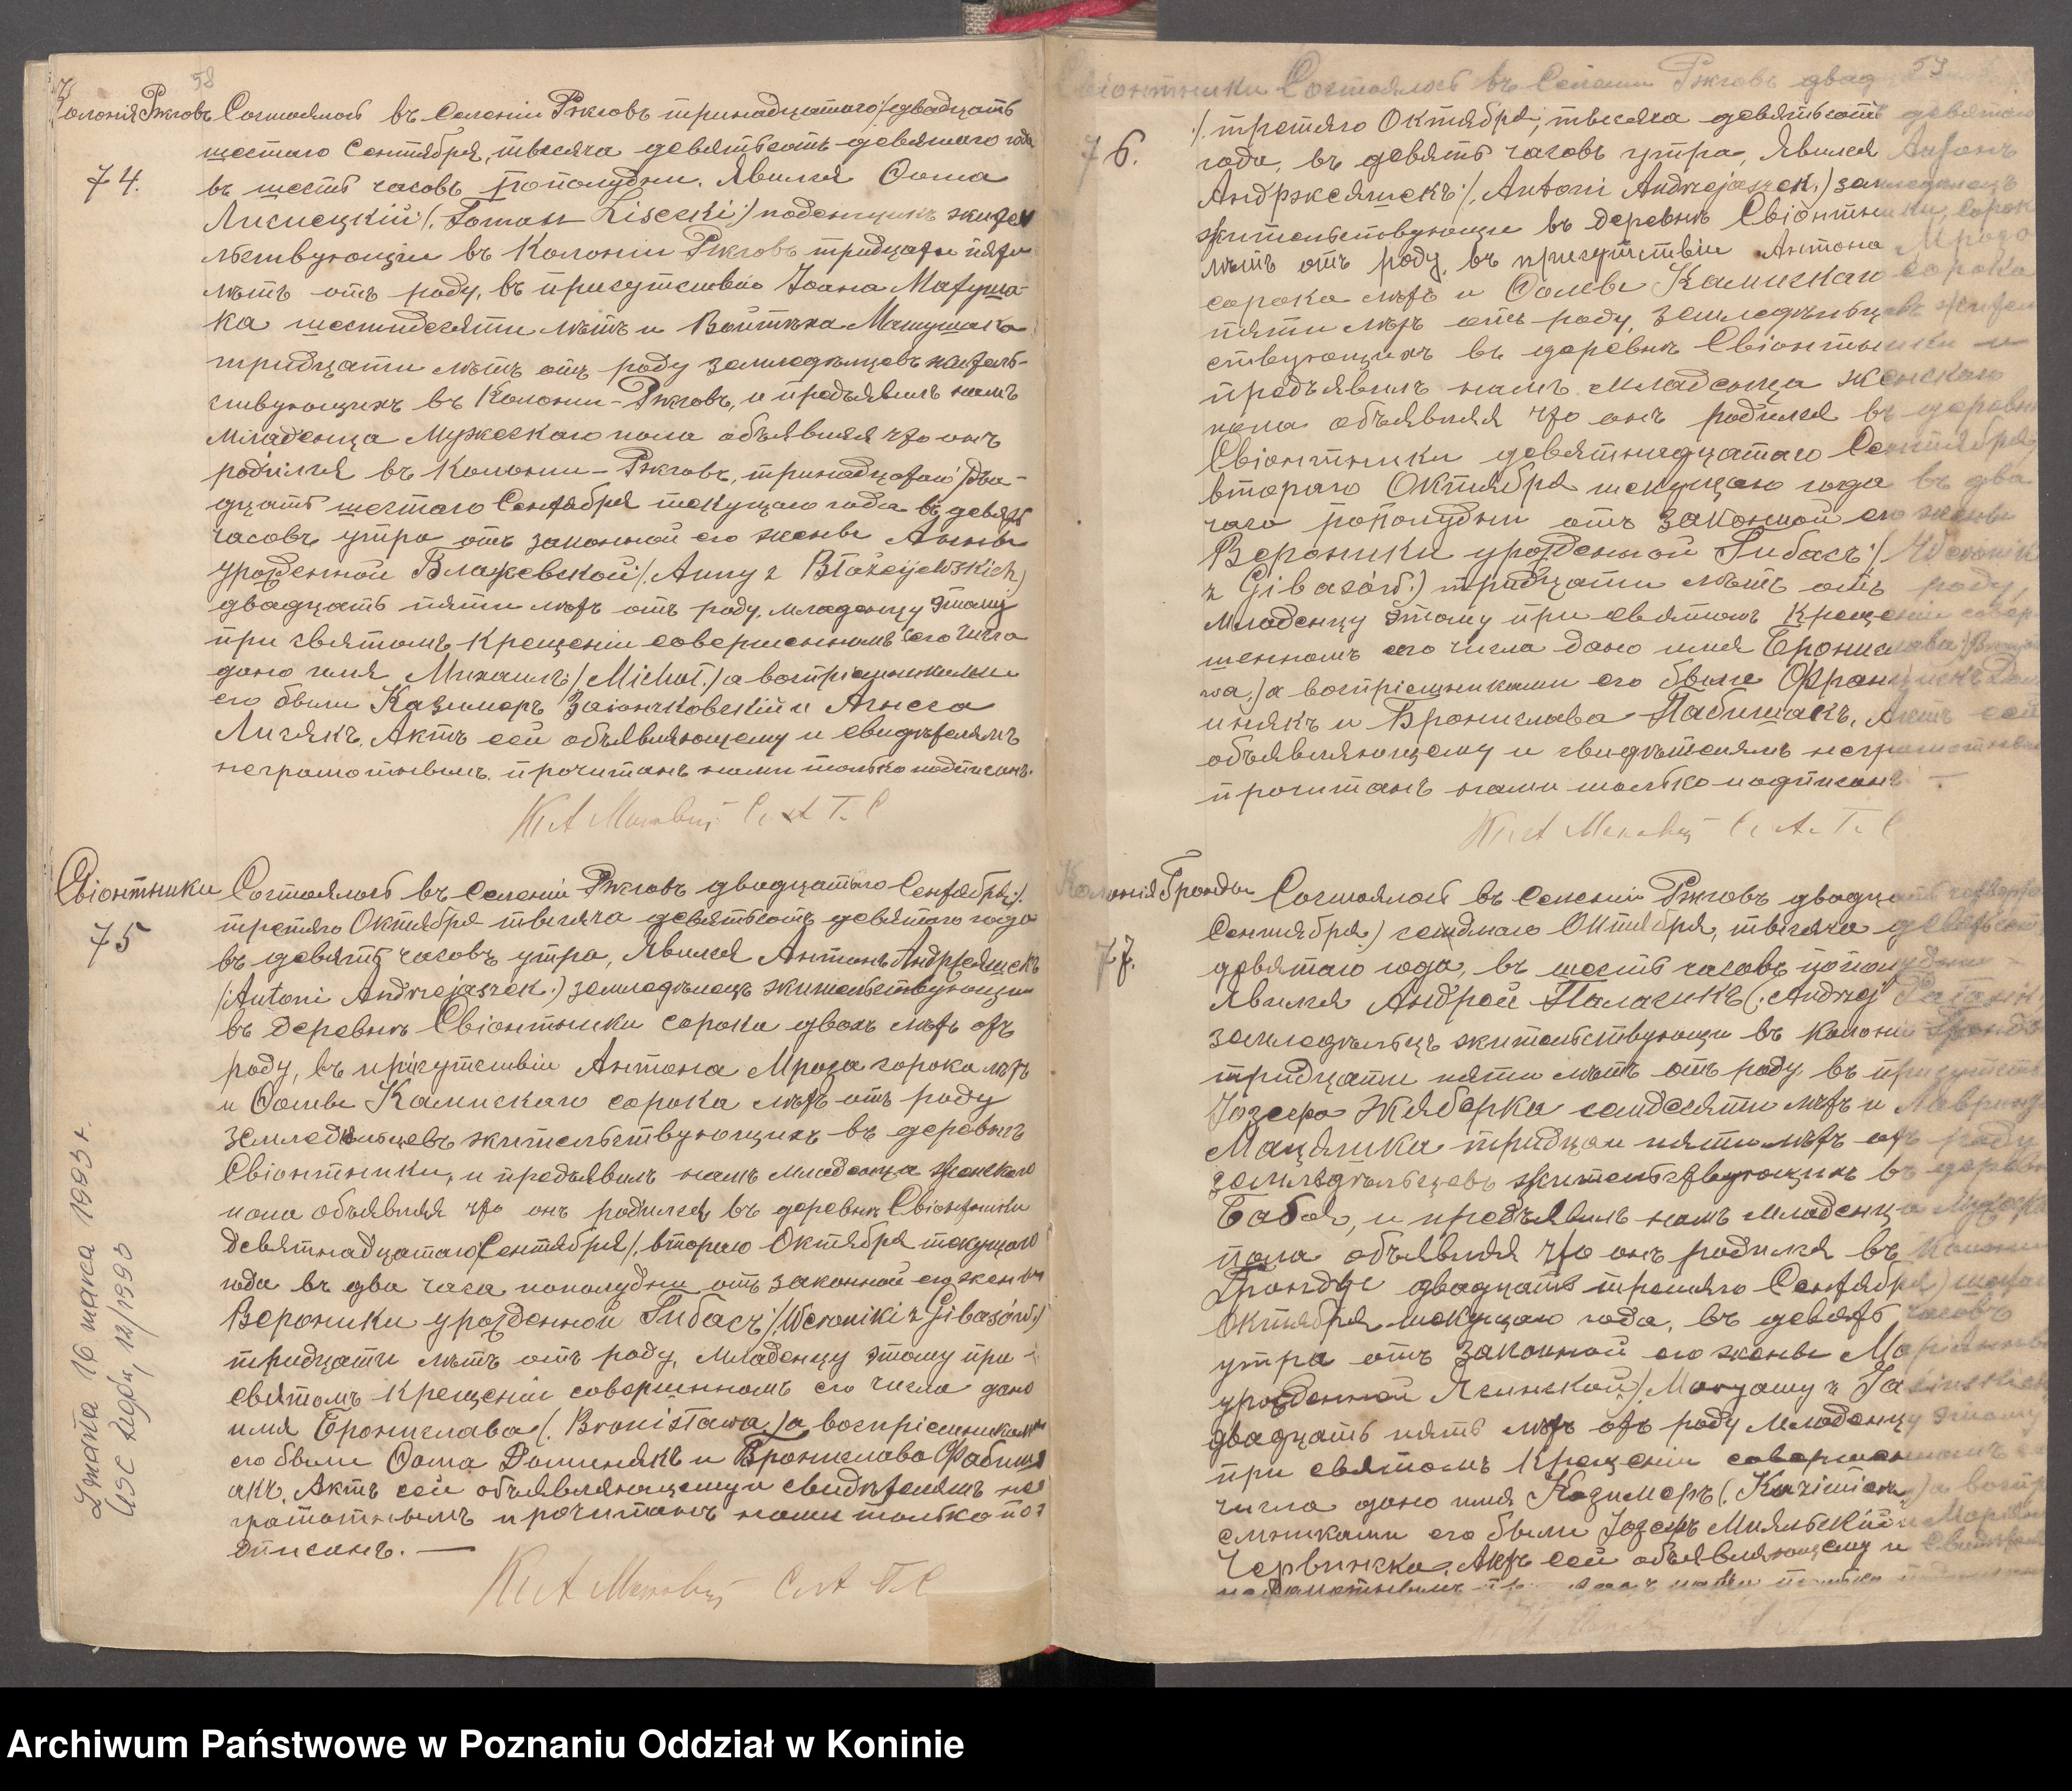 58
Колонія Ржговъ
74.
Состоялось въ Селеніи Ржговъ тринадцатаго /двадцать
шестаго Сентября, тысяча девятьсотъ девятаго года
въ шесть часовъ пополудни. Явился Ѳома
Лисиецкій /. Toman Lisiecki ./ поденщикъ жител
льствующіи въ Колоніи Ржговъ тридцати пяти
лѣтъ отъ роду, въ присутствіи Іоана Матуша-
ка шестидесяти лѣтъ и Войтѣха Матушака
тридцати лѣтъ отъ роду земледѣльцевъ житель-
ствующихъ въ Колоніи-Ржговъ, и предъявилъ намъ
младенца мужескаго пола объявляя что онъ
родился въ Колоніи-Ржговъ, тринадцатаго /два-
дцать шестаго Сентября текущаго года въ девять
часовъ утра отъ законной его жены Анны
урожденной Блажеевской /. Anny z Błażejewskich /
двадцать пяти лѣтъ отъ роду, младенцу этому
при святомъ крещеніи совершенномъ сего числа
дано имя Михаилъ / Michał ./ а воспріемниками
его были Казимеръ Заіончковскій и Агнеса
Лисякъ. Актъ сей объявляющему и свидѣтелямъ
неграмотнымъ прочитанъ нами только подписанъ.
Свіонтники
75
Состоялось въ Селеніи Ржговъ двадцатаго Сентября /.
третяго Октября тысяча девятьсотъ девятаго года
въ девять часовъ утра, Явился Антонъ Андржеящекъ
/. Antoni Andrzejaszek ./ земледѣлецъ жительствующіи
въ деревнѣ Свіонтники сорока двохъ лѣтъ отъ
роду, въ присутствіи Антона Мроза сорока лѣтъ
и Ѳомы Камискаго сорока лѣтъ отъ роду
земледѣльцевъ жительствующихъ въ деревнѣ
Свіонтники, и предъявилъ намъ младенца женскаго
пола объявляя что онъ родился въ деревнѣ Свіонтники
девятнадцатаго Сентября /. втораго Октября текущаго
года въ два часа пополудни отъ законной его жены
Вероники урожденной Гибасъ /. Weroniki z Gibasów ./
тридцати лѣтъ отъ роду, младенцу этому при
святомъ крещеніи совершенномъ его числа дано
имя Брониславa /. Bronisława ./ а воспріемниками
его были Ѳома Доминякъ и Бронислава Фабиша
акъ. Актъ сей объявляющему и свидѣтелямъ не
грамотнымъ прочитанъ нами только по
дписанъ. —
Zmarła 16 marca 1993 r.
USC 12/1993
59
Свіонтники
76.
Состоялось въ Селеніи Ржговъ двад
/. третяго Октября, тысяча девятьсотъ девятаго
года, въ девять часовъ утра, Явился Антонъ
Андржеяшекъ /. Antoni Andrzejaszek ./ земледѣлецъ
жительствующіи въ деревнѣ Свіонтники, сорок
лѣтъ отъ роду, въ присутствіи Антона Мроза
сорока лѣтъ и Ѳомы Камискаго сорока
пяти лѣтъ отъ роду, земледѣльцевъ жител
ствующихъ въ деревнѣ Свіонтники и
предъявилъ намъ младенца женскаго
пола объявляя что онъ родился въ деревнѣ
Свіонтники девятнадцатаго Сентября
втораго Октября текущаго года въ два
часа пополудни отъ законной его жены
Вероники урожденной Гибасъ /. Weronik
z Gibasów ./ тридцати лѣтъ отъ роду,
младенцу этому при святомъ крещеніи совер
шенномъ сего числа дано имя Бронислава /
wa ./ а воспріемниками его были Францишекъ Дом
инякъ и Бронислава Пабишакъ. Актъ сей
объявляющему и свидѣтелямъ неграмотнымъ
прочитанъ нами только подписанъ —
Колонія Гронды
77.
Состоялось въ Селеніи Ржговъ двадцать четвертаго
Сентября ./ седмаго Октября, тысяча девятьсотъ
девятаго года, въ шесть часовъ пополудни
Явился Андрей Паласикъ /. Andrzej
земледѣльецъ жительствующи въ Колоніи Гронды
тридцати пяти лѣтъ отъ роду въ присутств
Іозефа Жяберка семдесяти лѣтъ и Лавринц
Мацялика тридцаи пяти лѣтъ отъ роду
земледѣльцевъ жительствующихъ въ деревн
Бабя, и предъявилъ намъ младенца мужска
пола объявляя что онъ родился въ Колоніи
Грондзе двадцать третяго Сентября / шестаго
Октября текущаго года, въ девять часовъ
утра отъ законной его жены Маріянны
урожденной Ясинской /. Maryanny z Jasinskich
двадцать пять лѣтъ отъ роду младенцу этому
при святомъ крещеніи совершенномъ
числа дано имя Казимеръ /. Kazimierz ./ а воспр
емниками его были Іозефъ Мияльскій и Маріян
Червинска. Актъ сей объявляющему и свидѣтел
неграмотнымъ нами только
Archiwum Państwowe w Poznaniu Oddział w Koninie